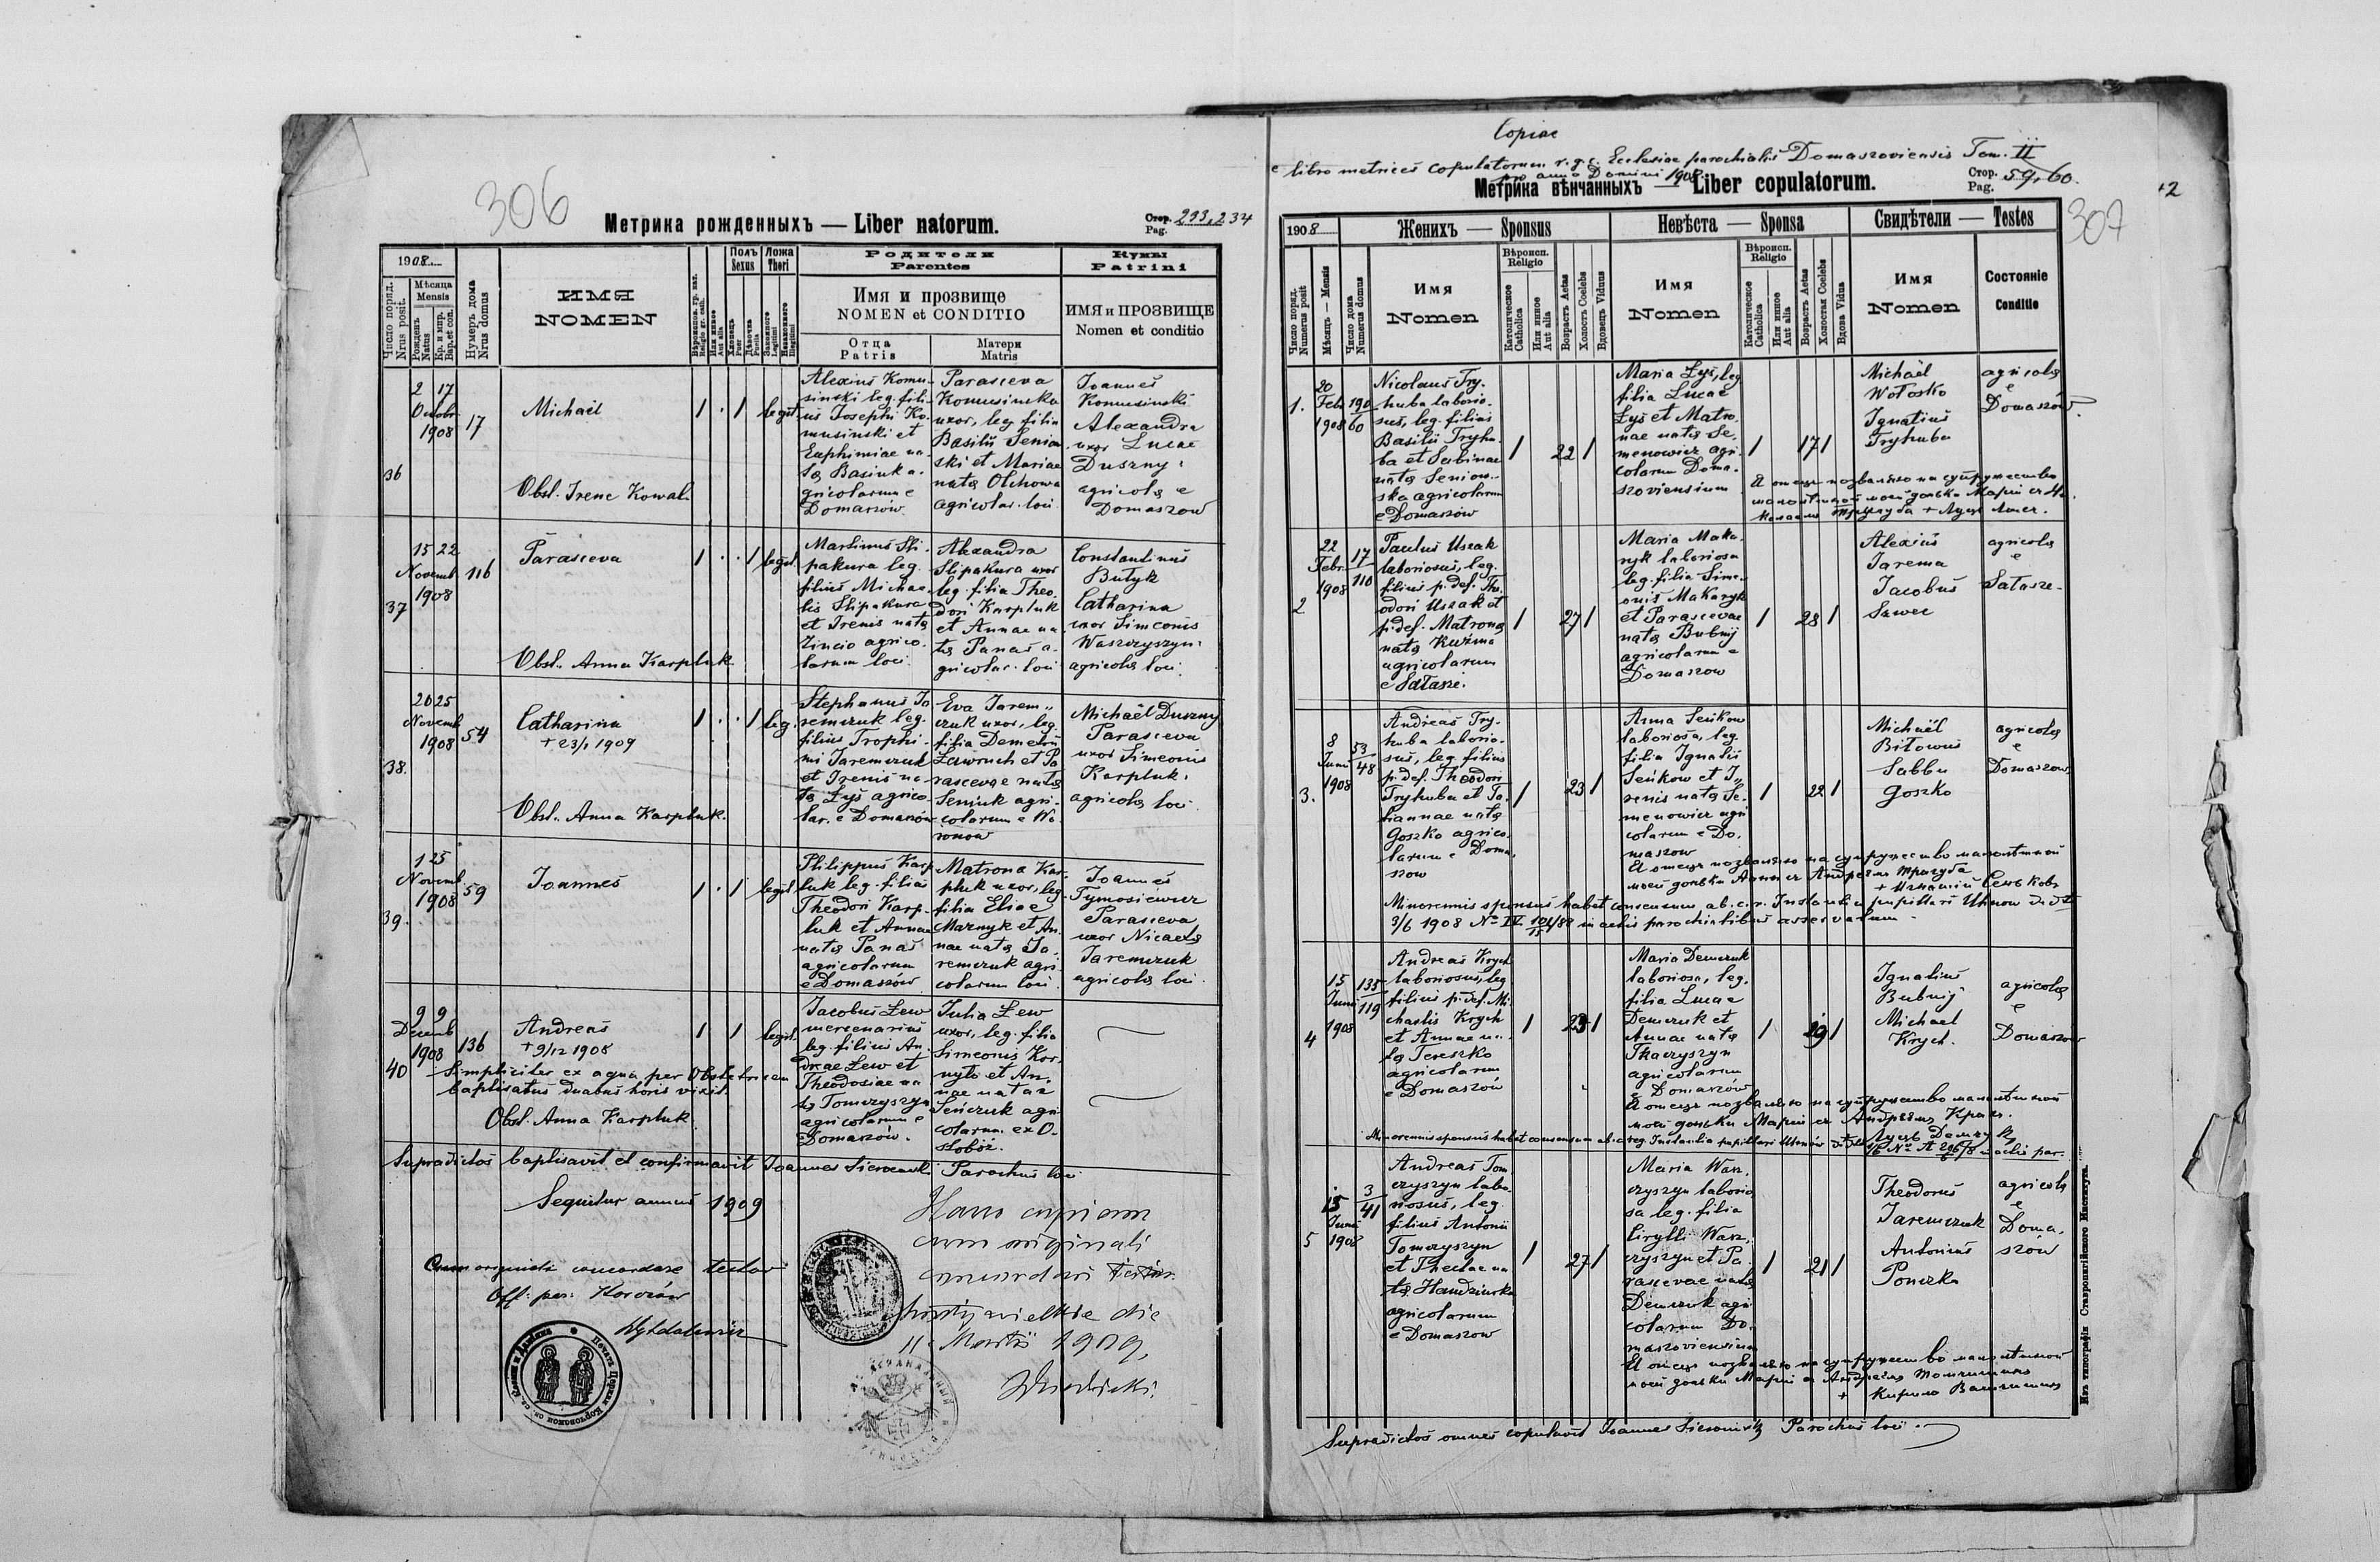 306
Метрика рожденныхъ — Liber natorum.
Стор. Pag. 233, 234
1908
Число поряд. Nrus posit.
Мѣсяца Mensis
Рожденъ Natus
Кр. и мир. Bap. et con.
Нумеръ дома Nrus domus
ИМЯ
NOMEN
Вѣроиспов. гр. кат. Religio gr. cath.
Или инное Aut alia
Полъ Sexus
Хлопецъ Puer
Дѣвочка Puella
Ложа Thori
Законного Legitimi
Незаконного Illegitimi
Родители
Parentes
Имя и прозвище
NOMEN et CONDITIO
Отца
Patris
Матери
Matris
Кумы
Patrini
ИМЯ и ПРОЗВИЩЕ
Nomen et conditio
36
2 17
Octobr
1908
17
Michaël
Obst. Irene Kowal.
1 . 1 legit.
Alexius Komu-
sinski leg. fili-
us Josephi Ko-
musinski et
Euphimiae na-
ta Basiuk a-
gricolarum e
Domaszów.
Parasceva
Komusinska
uxor, leg. filia
Basilii Seniow-
ski et Mariae
nata Olchowa
agricolar. loci
Ioannes
Komusinski
Alexandra
uxor Lucae
Duszny,
agricolae e
Domaszow
37
15 22
Novemb.
1908
116
Parasceva
Obst. Anna Karpluk
1 . . 1 legit.
Martinus Sli-
pakura leg.
filius Michae-
lis Slipakura
et Irenis nata
Zincio agrico-
larum loci.
Alexandra
Slipakura uxor
leg. filia Theo-
dori Karpluk
et Annae na-
ta Panas a-
gricolar. loci
Constantinus
Butyk
Catharina
uxor Simeonis
Waszczyszyn,
agricolae loci.
38.
20 25
Novemb
1908
54
Catharina
+ 23/1 1909
Obst. Anna Karpluk.
1 . . 1 leg.
Stephanus Ja-
remczuk leg.
filius Trophi-
mi Jaremczuk
et Irenis na-
ta Łyś agrico-
lar. e Domaszów
Eva Jarem-
czuk uxor, leg.
filia Demetrii
Ławruch et Pa-
rascevae nata
Seniuk agri-
colarum e Wo-
ronow
Michaël Duszny
Parasceva
uxor Simeonis
Karpluk,
agricolae loci
39.
1 25
Novemb
1908
59
Joannes
1 . 1 legit.
Philippus Karp-
luk leg. filius
Theodori Karp-
luk et Annae
nata Panas
agricolarum
e Domaszów
Matrona Kar-
pluk uxor, leg.
filia Eliae
Maznyk et An-
nae nata Ja-
remczuk agri-
colarum loci
Joannes
Tymosiewicz
Parasceva
uxor Nicaetae
Jaremczuk
agricolae loci.
40
9 9
Decemb
1908
136
Andreas
+ 9/12 1908
Simpliciter ex aqua per Obstetricem
baptisatus duabus horis vixit.
Obst. Anna Karpluk
1 1 legit.
Jacobus Lew
mercenarius
leg. filius An-
dreae Lew et
Theodosiae na-
ta Tomczyszyn
agricolarum e
Domaszów.
Julia Lew
uxor, leg. filia
Simeonis Kor-
nyło et An-
nae natae
Seńczuk agri-
colarum ex O-
stobiż.
Supradictos baptisavit et confirmavit Joannes Parochus loci
Sequitur annus 1909
Cum originali concordare testor
Off. par. Korczów
Hanc copiam
cum originali
concordari testor.
die
11 Martii 1909.
Copiae
e libro metrices copulatorum r. g. c. Ecclesiae parochialis Domaszoviensis Tom. II
pro anno Domini 1908
Метрика вѣнчанныхъ — Liber copulatorum.
Стор. Pag. 59, 60.
307
1908
Число поряд. Numerus posit
Мѣсяцъ — Mensis
Число дома Numerus domus
Женихъ — Sponsus
Имя
Nomen
Вѣроисп. Religio
Католическое Catholica
Или инное Aut alia
Возрастъ Aetas
Холостъ Coelebs
Вдовецъ Viduus
Невѣста — Sponsa
Имя
Nomen
Вѣроисп. Religio
Католическое Catholica
Или инное Aut alia
Возрастъ Aetas
Холостая Coelebs
Вдова Vidua
Свидѣтели — Testes
Имя
Nomen
Состояніе
Conditio
1.
20
Febr.
1908
190
60
Nicolaus Try-
huba laborio-
sus, leg. filius
Basilii Tryhu-
ba et Sabinae
nata Seniow-
ska agricolarum
e Domaszów
1 22 1
Maria Łyś, leg.
filia Lucae
Łyś et Matro-
nae nata Se-
menowicz agri-
colarum Doma-
szoviensium
1 17 1
Michaël
Wołoszko
Ignatius
Tryhuba
agricolae
e
Domaszów.
2
22
Febr.
1908
17
110
Paulus Uszak
laboriosus, leg.
filius p. def. The-
odori Uszak et
p. def. Matrona
nata Kuźma
agricolarum
e Sałasze.
1 27 1
Maria Maka-
ryk laboriosa
leg. filia Sime-
onis Makaryk
et Parascevae
nata Bubnij
agricolarum e
Domaszow
1 28 1
Alexius
Jarema
Jacobus
Szwec
agricolae
e
Sałasze-
3.
8
Junii
1908
53
48
Andreas Try-
huba laborio-
sus, leg. filius
p. def. Theodori
Tryhuba et Ta-
tiannae nata
Goszko agrico-
larum e Doma-
szow
1 23 1
Anna Seńkow
laboriosa, leg.
filia Ignatii
Seńkow et I-
renis nata Se-
menowicz agri-
colarum e Do-
maszow
1 22 1
Michaël
Bitowus
Sabba
Goszko
agricolae
e
Domaszow
Minorennis sponsus habet consensum ab c. r. Instantia pupillari Uhnow de dto
3/6 1908 in actis parochialibus asservatum
4
15
Junii
1908
135
119
Andreas Krych
laboriosus, leg.
filius p. def. Mi-
chaelis Krych
et Annae na-
ta Tereszko
agricolarum
e Domaszów
1 23 1
Maria Demczuk
laboriosa, leg.
filia Lucae
Demczuk et
Annae nata
Tkaczyszyn
agricolarum
e Domaszów
1 19 1
Ignatius
Bubnij
Michael
Krych.
agricolae
e
Domaszów
5
15
Junii
1908
3
41
Andreas Tom-
czyszyn labo-
riosus, leg.
filius Antonii
Tomczyszyn
et Theclae na-
ta Handziurka
agricolarum
e Domaszow
1 27 1
Maria Wasz-
czyszyn laborio-
sa leg. filia
Cirylli Wasz-
czyszyn et Pa-
rascevae nata
Demczuk agri-
colarum Do-
maszoviensium
1 21 1
Theodorus
Jaremczuk
Antonius
Ponczka
agricolae
e
Doma-
szów
Supradictos omnes copulavit Joannes Parochus loci
Изъ типографіи Ставропигійского Института.